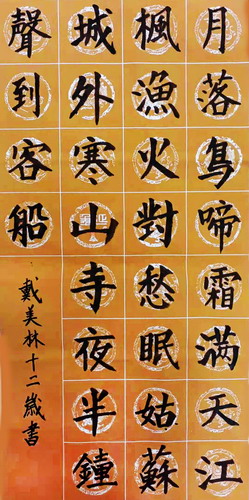 月落烏啼霜满天江
楓漁火對愁眠姑蘇
城外寒山寺夜半鐘
聲到客船
戴美林十二歲書